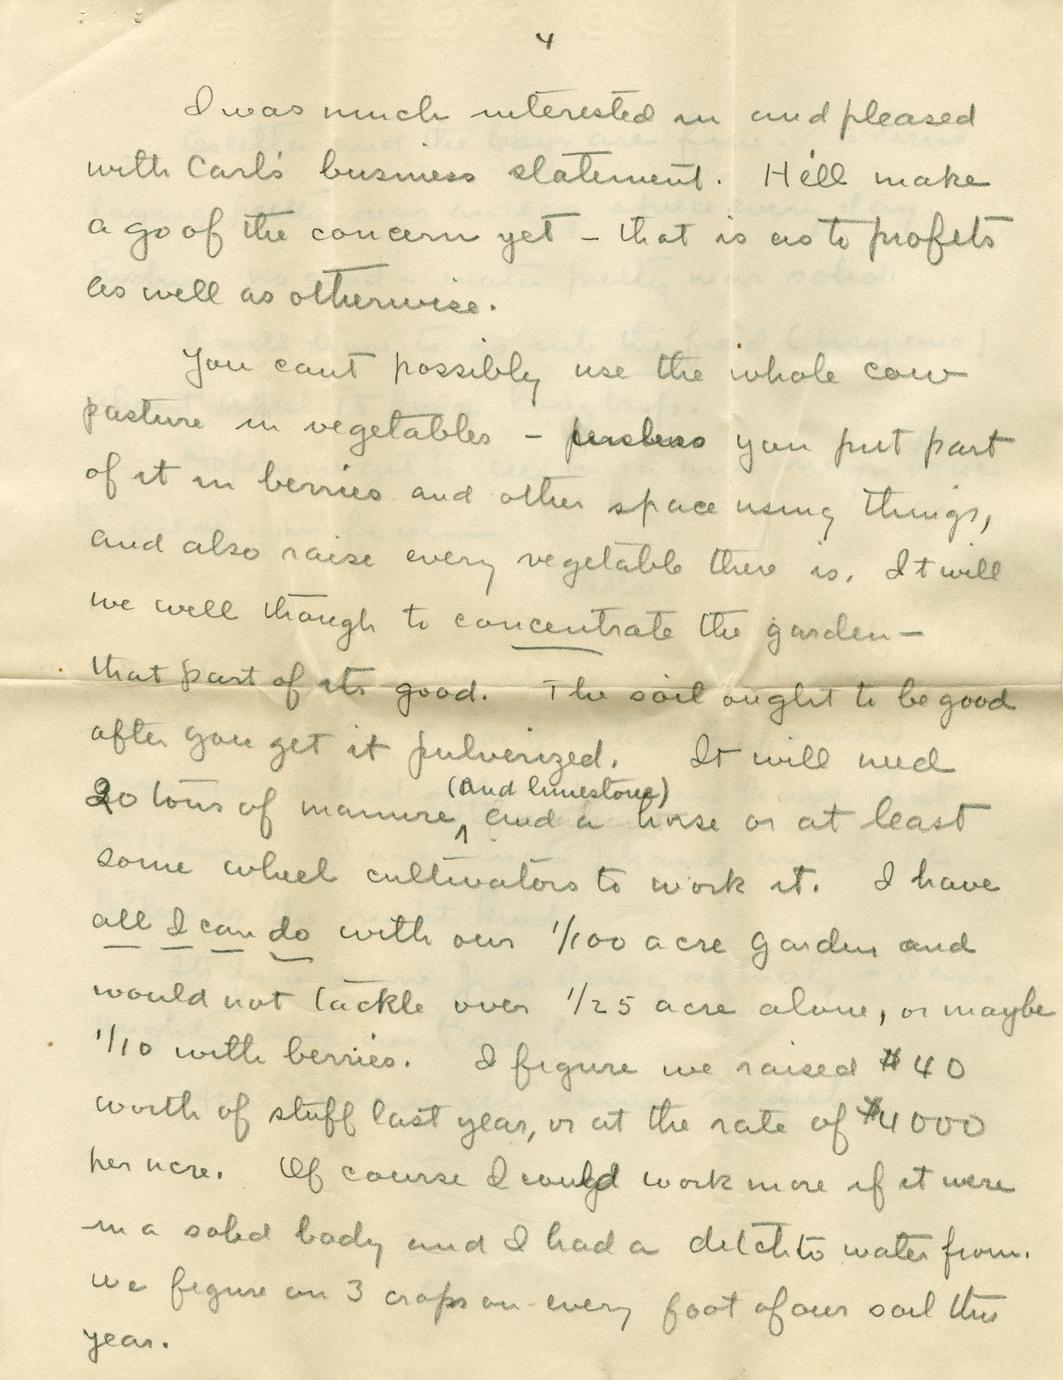 4
I was much interested in and pleased
with Carl's business statement. He'll make
a go of the concern yet – that is as to profits
as well as otherwise.
You cant possibly use the whole cow
pasture in vegetables – unless you put part
of it in berries and other space using things,
and also raise every vegetable there is. It will
we well though to concentrate the garden –
that part of its good. The soil ought to be good
after you get it pulverized. It will need
20 tons of manure ^ (and limestone) and a horse or at least
some wheel cultivators to work it. I have
all I can do with our 1/100 acre garden and
would not tackle over 1/25 acre alone, or maybe
1/10 with berries. I figure we raised $40
worth of stuff last year, or at the rate of $4000
per acre. Of course I could work more if it were
in a solid body and I had a ditch to water from.
We figure on 3 crops on every foot of our soil this
year.